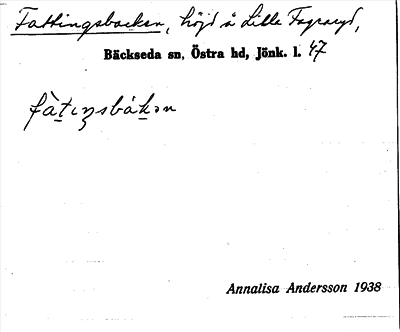 Fattingsbacken, höjd å Lilla Fagraryd,
Bäckseda sn, Östra hd, Jönk. l. 47
fàtıŋsbàkən
Annalisa Andersson 1938